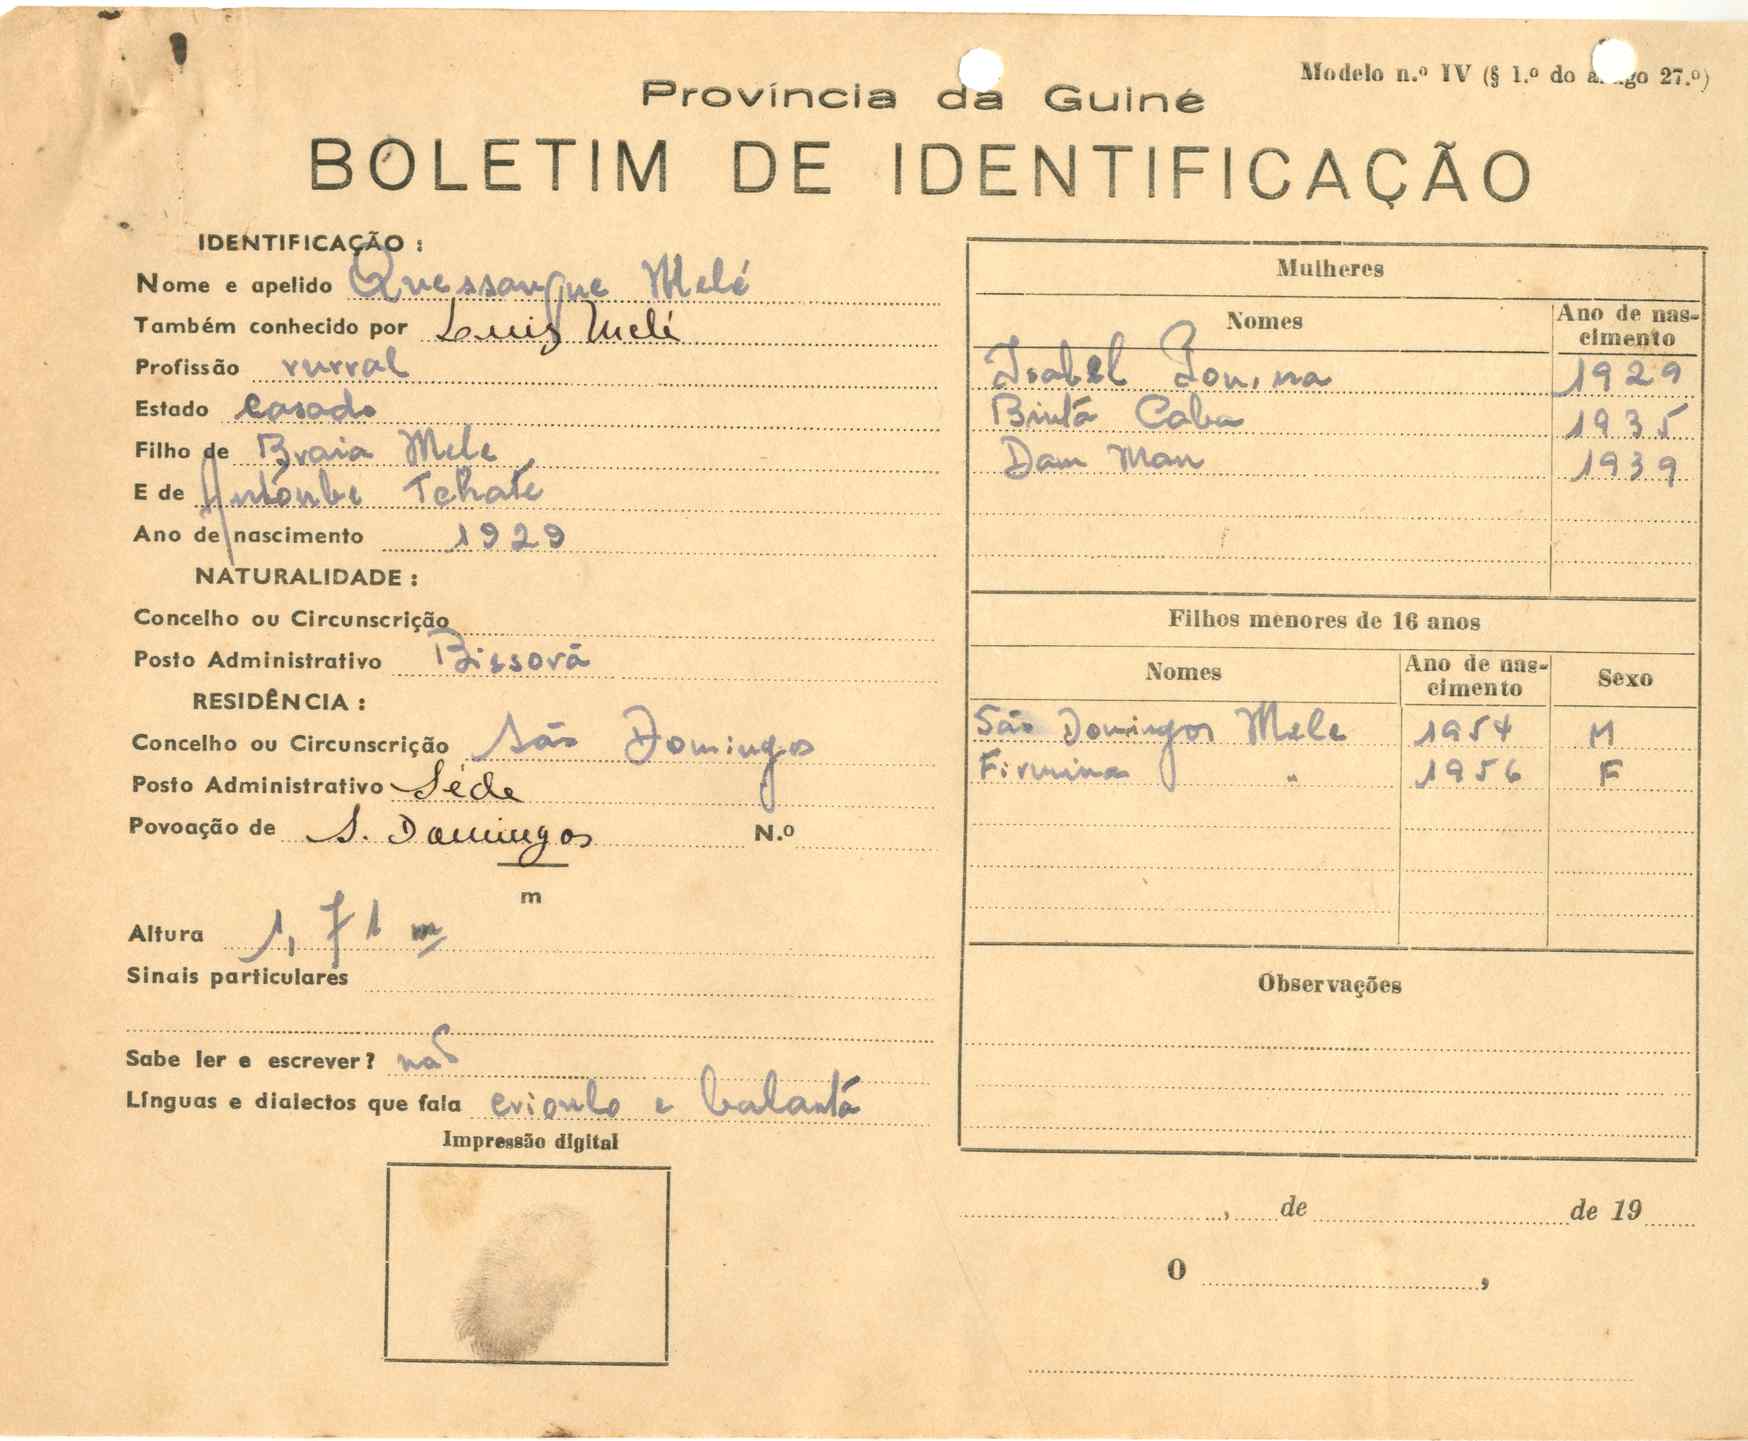 Modelo n.º IV (§ 1.º do a go 27.º)
Província da Guiné
BOLETIM DE IDENTIFICAÇÃO
IDENTIFICAÇÃO :
Nome e apelido Quessangue Melé
Também conhecido por Luis Melé
Profissão rurral
Estado casado
Filho de Braia Mele
E de Antónbe Tchate
Ano de nascimento 1929
NATURALIDADE :
Concelho ou Circunscrição
Posto Administrativo Bissorã
RESIDÊNCIA :
Concelho ou Circunscrição São Domingos
Posto Administrativo Séde
Povoação de S. Domingos N.º
m
Altura 1,71 m
Sinais particulares
Sabe ler e escrever? não
Línguas e dialectos que fala crioulo e balantá
Impressão digital
Mulheres
Nomes Ano de nas-
cimento
Isabel 1929
Bintá Cabu 1935
Dam Man 1939
Filhos menores de 16 anos
Nomes Ano de nas-
cimento Sexo
São Domingos Mele 1954 M
Firmina " 1956 F
Observações
, de de 19
O ,